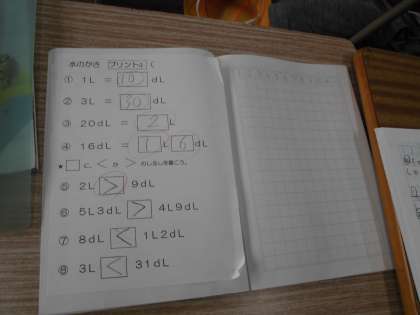 水のかさ プリント4 (
① 1L = 10 dL
② 3L = 30 dL
③ 20dL = 2 L
④ 16dL = 1 L 6 dL
★□に、<か>のしるしを書こう。
⑤ 2L > 9dL
⑥ 5L3dL > 4L9dL
⑦ 8dL < 1L2dL
⑧ 3L < 31dL